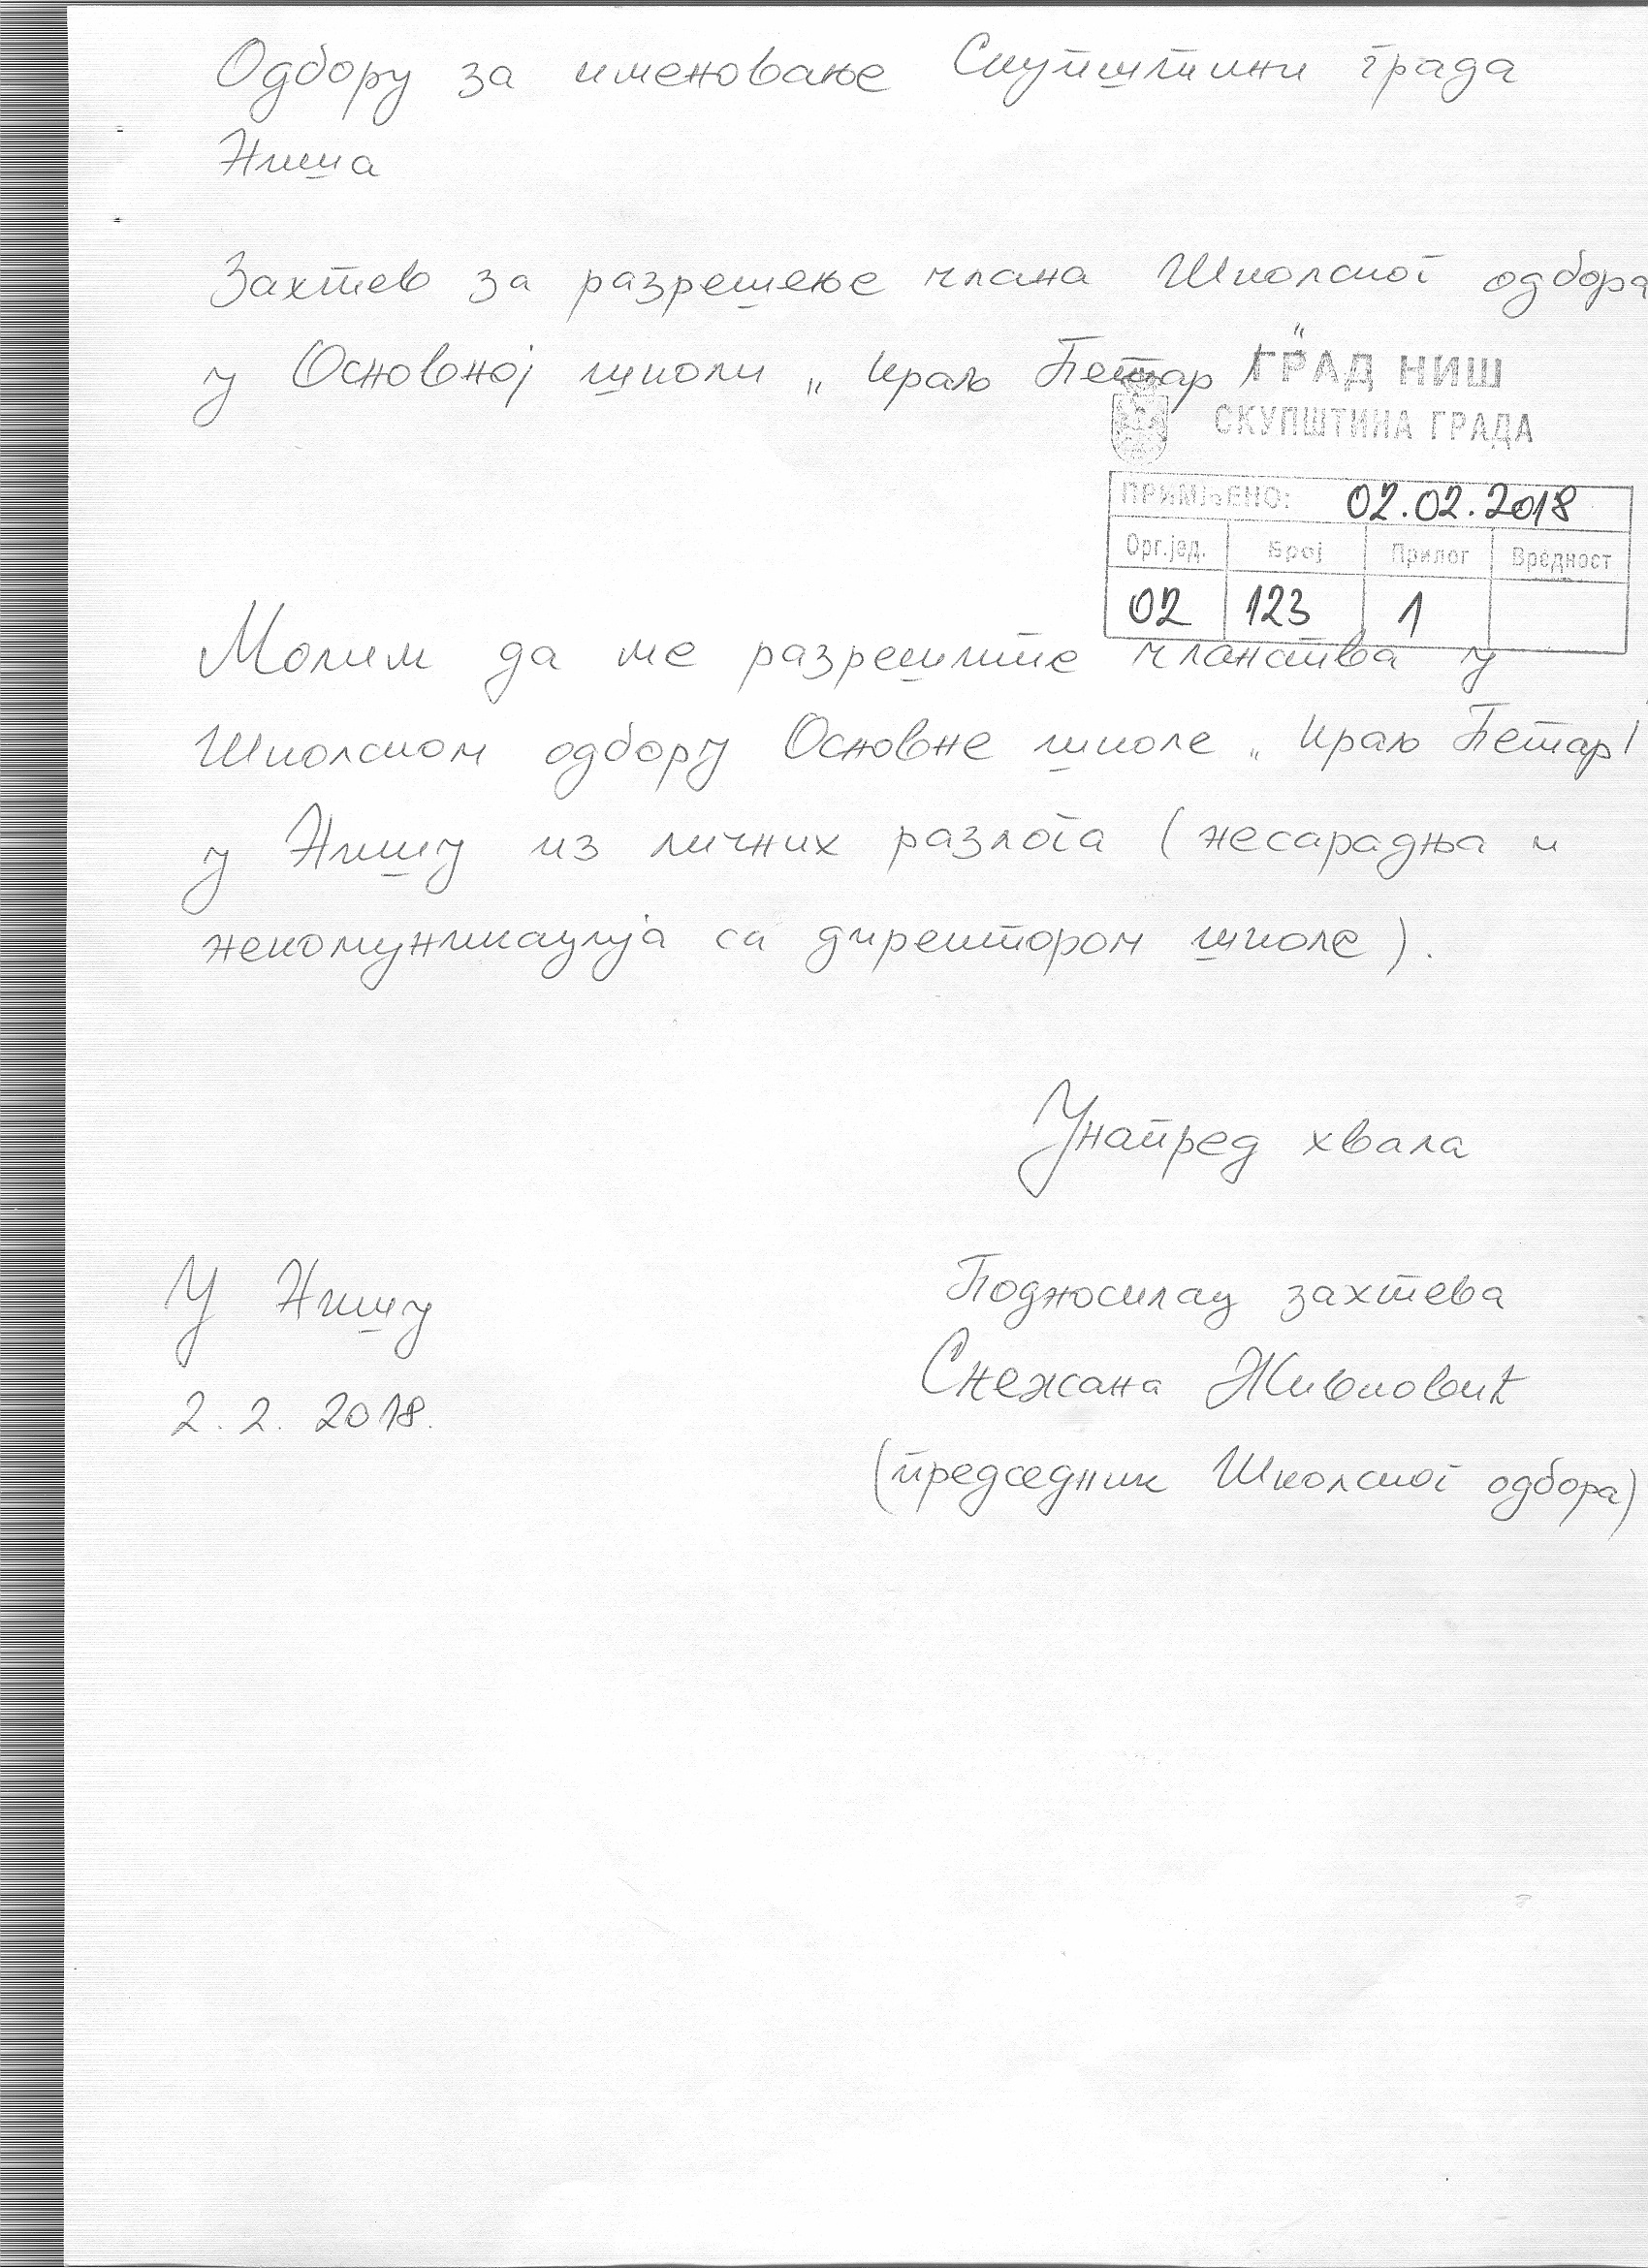 Одбору за именовање Скупштини града
Ниша
Захтев за разрешење члана Школског одбора
у Основној школи „Краљ Петар I"
ГРАД НИШ
СКУПШТИНА ГРАДА
ПРИМЉЕНО: 02.02.2018
Орг.јед. Број Прилог Вредност
02 123 1
Молим да ме разрешите чланства у
Школском одбору Основне школе „Краљ Петар I
у Нишу из личних разлога (несарадња и
некомуникација са директором школе).
Унапред хвала
У Нишу
2.2.2018.
Подносилац захтева
Снежана Живковић
(председник Школског одбора)